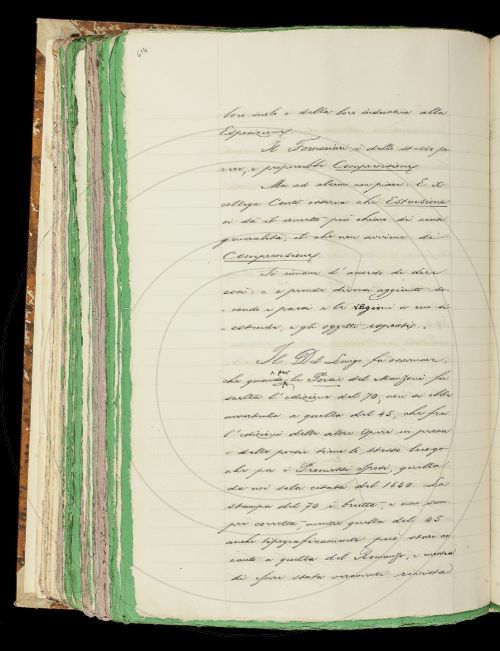 614
loro suolo e della loro industria alla
Esposizione
Il Fornaciari è dello stesso pa-
rere, e proporrebbe Comprensione
Ma ad alcuni non piace. E il
collega Conti osserva che Estensione
ci dà il concetto più chiaro di una
generalità; il che non avviene di
Comprensione
Si rimane d'accordo di dire
così: = e prende diversi aggiunti se-
= condo i paesi e le regioni a cui si
= estende, e gli oggetti esposti =.
Il Del Lungo fa osservare,
che quando per le Poesie del Manzoni fu
scelta l'edizione del 70, non si ebbe
avvertenza a quella del 45, che fra
l'edizioni delle altre Opere in prosa
e delle poesie tiene lo stesso luogo
che per i Promessi Sposi, quella
da noi sola citata del 1840. La
stampa del 70 è brutta, e non sem-
pre corretta, mentre quella del 45
anche tipograficamente può stare ac-
canto a quella del Romanzo, e mostra
di esser stata veramente rivista